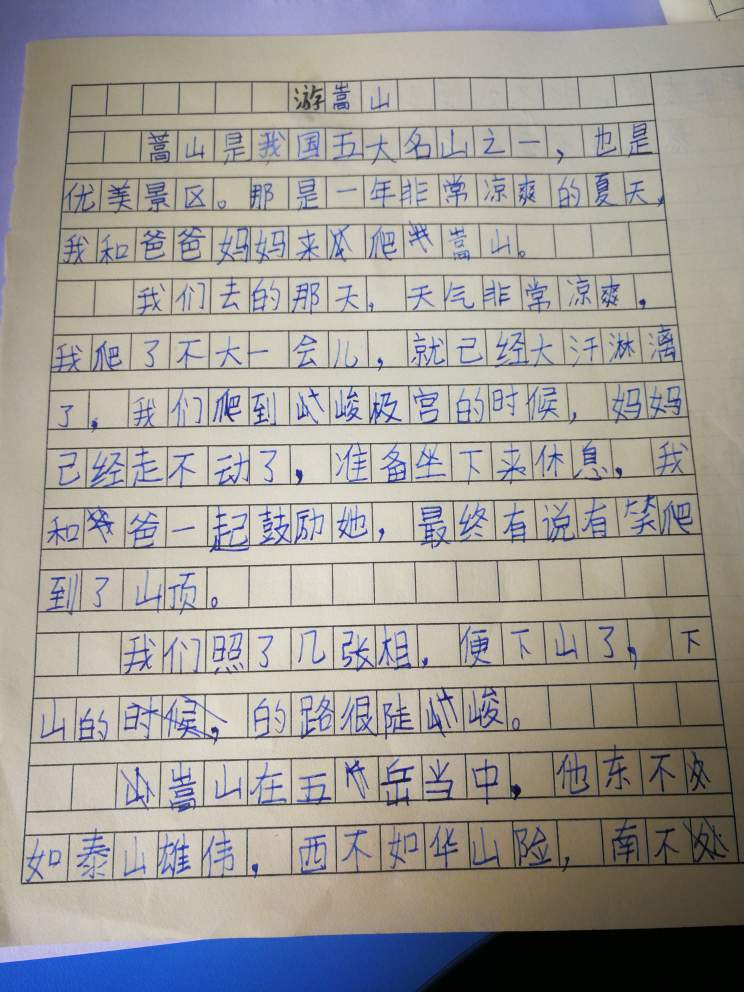 游嵩山
嵩山是我国五大名山之一，也是
优美景区。那是一年非常凉爽的夏天，
我和爸爸妈妈来爬嵩山。
我们去的那天，天气非常凉爽，
我爬了不大一会儿，就已经大汗淋漓
了，我们爬到峻极宫的时候，妈妈
已经走不动了，准备坐下来休息，我
和爸一起鼓励她，最终有说有笑爬
到了山顶。
我们照了几张相，便下山了，下
山的时候，的路很陡峻。
嵩山在五岳当中，他东不
如泰山雄伟，西不如华山险，南不